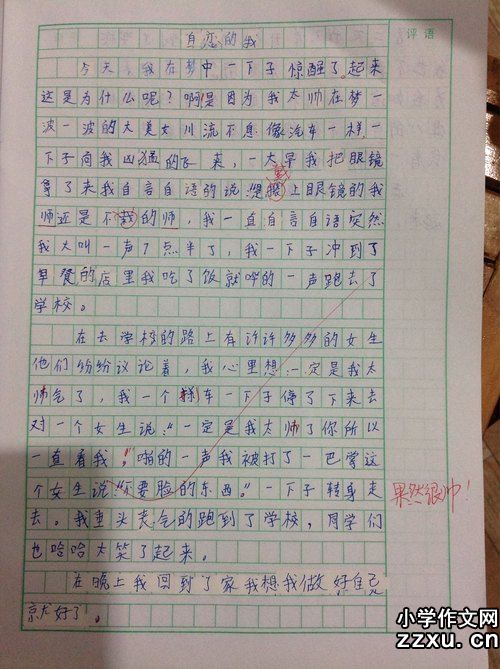 自恋的我
评语
今天，我在梦中一下子惊醒了。起来
这是为什么呢？啊！是因为我太帅在梦一
波一波的大美女川流不息像汽车一样一
下子向我凶猛的飞来，一大早我把眼镜
戴
拿了来我自言自语的说：“是 上眼镜的我
师还是不 的师，我一直自言自语突然
我大叫一声7点半了，我一下子冲到了
早餐的店里我吃了饭就哗的一声跑去了
学校。
在去学校的路上有许许多多的女生
他们纷纷议论着，我心里想一定是我太
帅气了，我一个 车一下子停了下来去
对一个女生说：“一定是我太帅了你所以
一直看我！”啪的一声我被打了一巴掌这
个女生说“不要脸的东西。”一下子转身走
去。我垂头丧气的跑到了学校，同学们
果然很帅！
也哈哈大笑了起来。
在晚上我回到了家我想我做好自己
就好了。
小学作文网
zzxu.cn